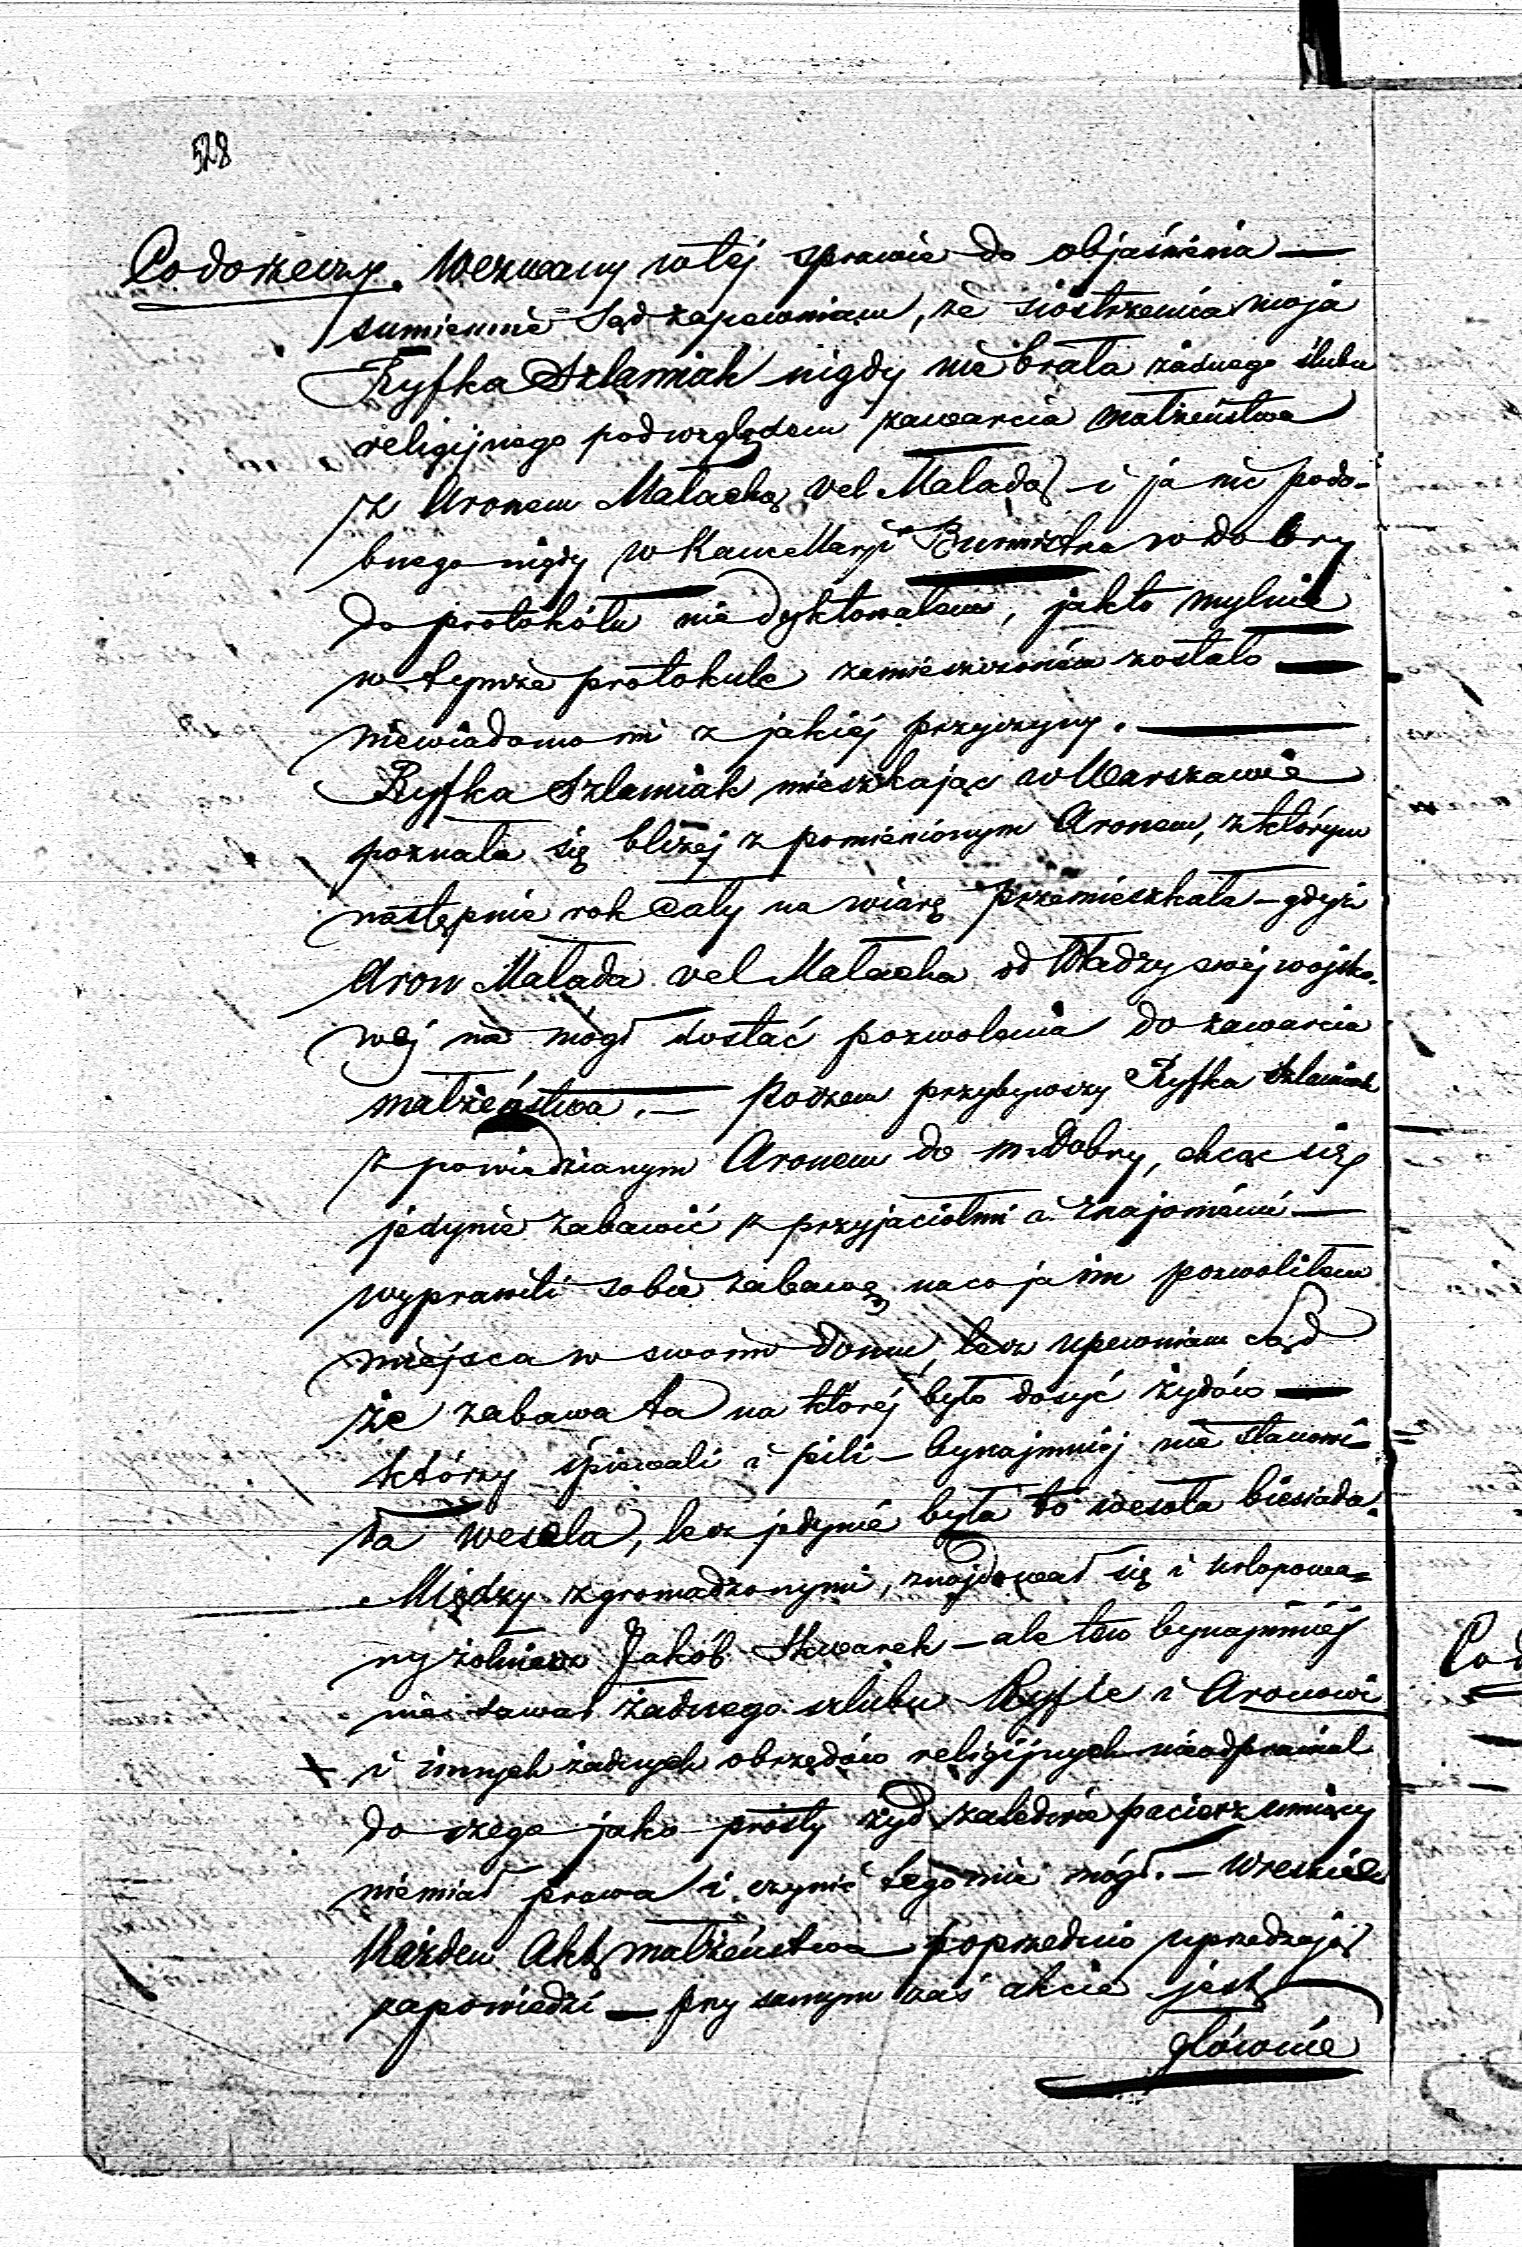 528
Co do rzeczy. Wezwany w tej sprawie do objaśnienia —
sumiennie Sąd zapewniam, że siostrzenica moja
Ryfka Szlamiak nigdy nie brała żadnego ślubu
religijnego pod względem zawarcia małżeństwa
z Aronem Małachą vel Maladą — i ja nic podo-
bnego nigdy w Kancellaryi Burmistrza w Dobry
do protokółu nie dyktowałem, jak to mylnie
w tymże protokule zamieszczoném zostało —
niewiadomo mi z jakiéj przyczyny. —
Ryfka Szlamiak mieszkając w Warszawie
poznała się bliżej z pomienionym Aronem, z którym
następnie rok cały na wiarę przemieszkała — gdyż
Aron Malada vel Małacha od Władzy swéj wojsko-
wéj nie mógł dostać pozwolenia do zawarcia
małżeństwa. — Potem przybywszy Ryfka Szlamiak
z powiedzianym Aronem do m. Dobry, chcąc się
jedynie zabawić z przyjaciołmi i znajomémi —
wyprawili sobie zabawę, na co ja im pozwoliłem
miejsca w swoim domu, lecz upewniam Sąd
że zabawa ta na któréj było dosyć żydów —
którzy śpiewali i pili — bynajmniéj nie stanowi-
ła wesela, lecz jedynie była to wesoła biesiada.
Między zgromadzonymi, znajdował się i urlopowa-
ny żołnierz Jakób Skwarek — ale ten bynajmniéj
nie dawał żadnego szlubu Ryfce i Aronowi
+ i innych żadnych obrzędów religijnych nieodprawiał
do czego jako prosty żyd zaledwie pacierz umiący
niemiał prawa i czynić tego nie mógł. — Wreszcie
Każden Akt małżeństwa poprzednio uprzedzają
zapowiedzi — przy samym zaś akcie jest
głównie